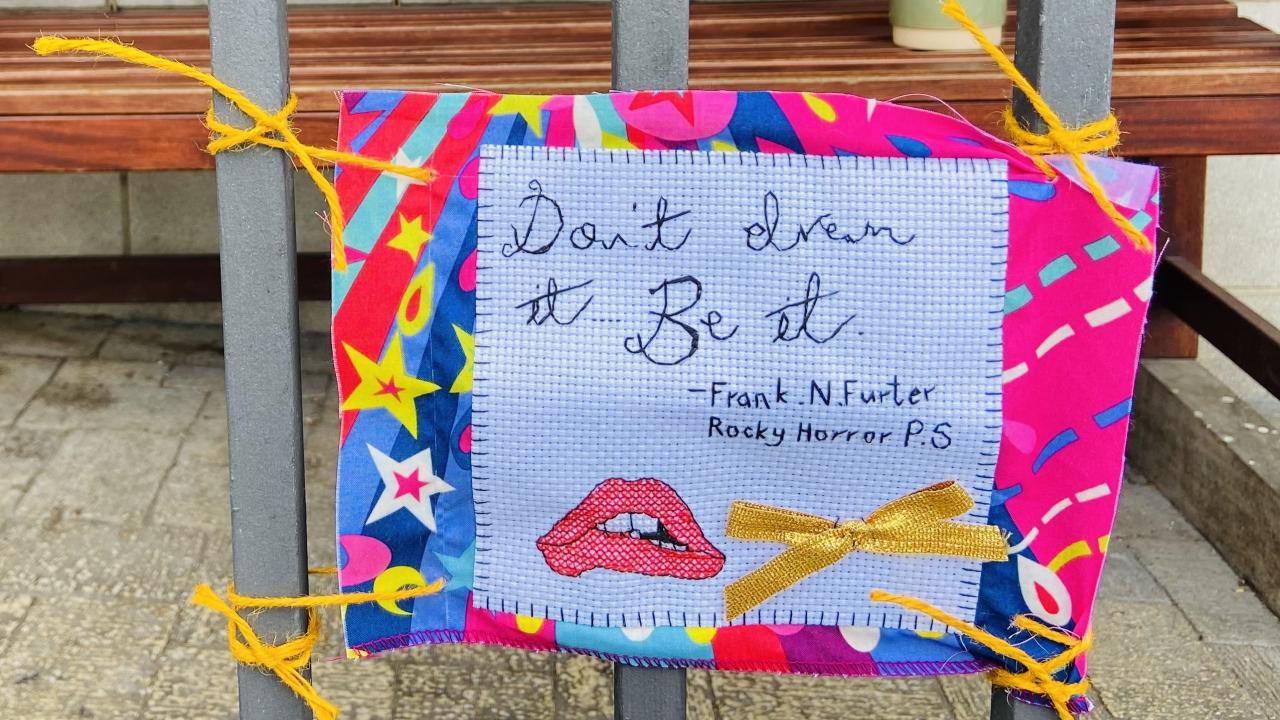 Don't dream
it....Be it.
-Frank.N.Furter
Rocky Horror P.S